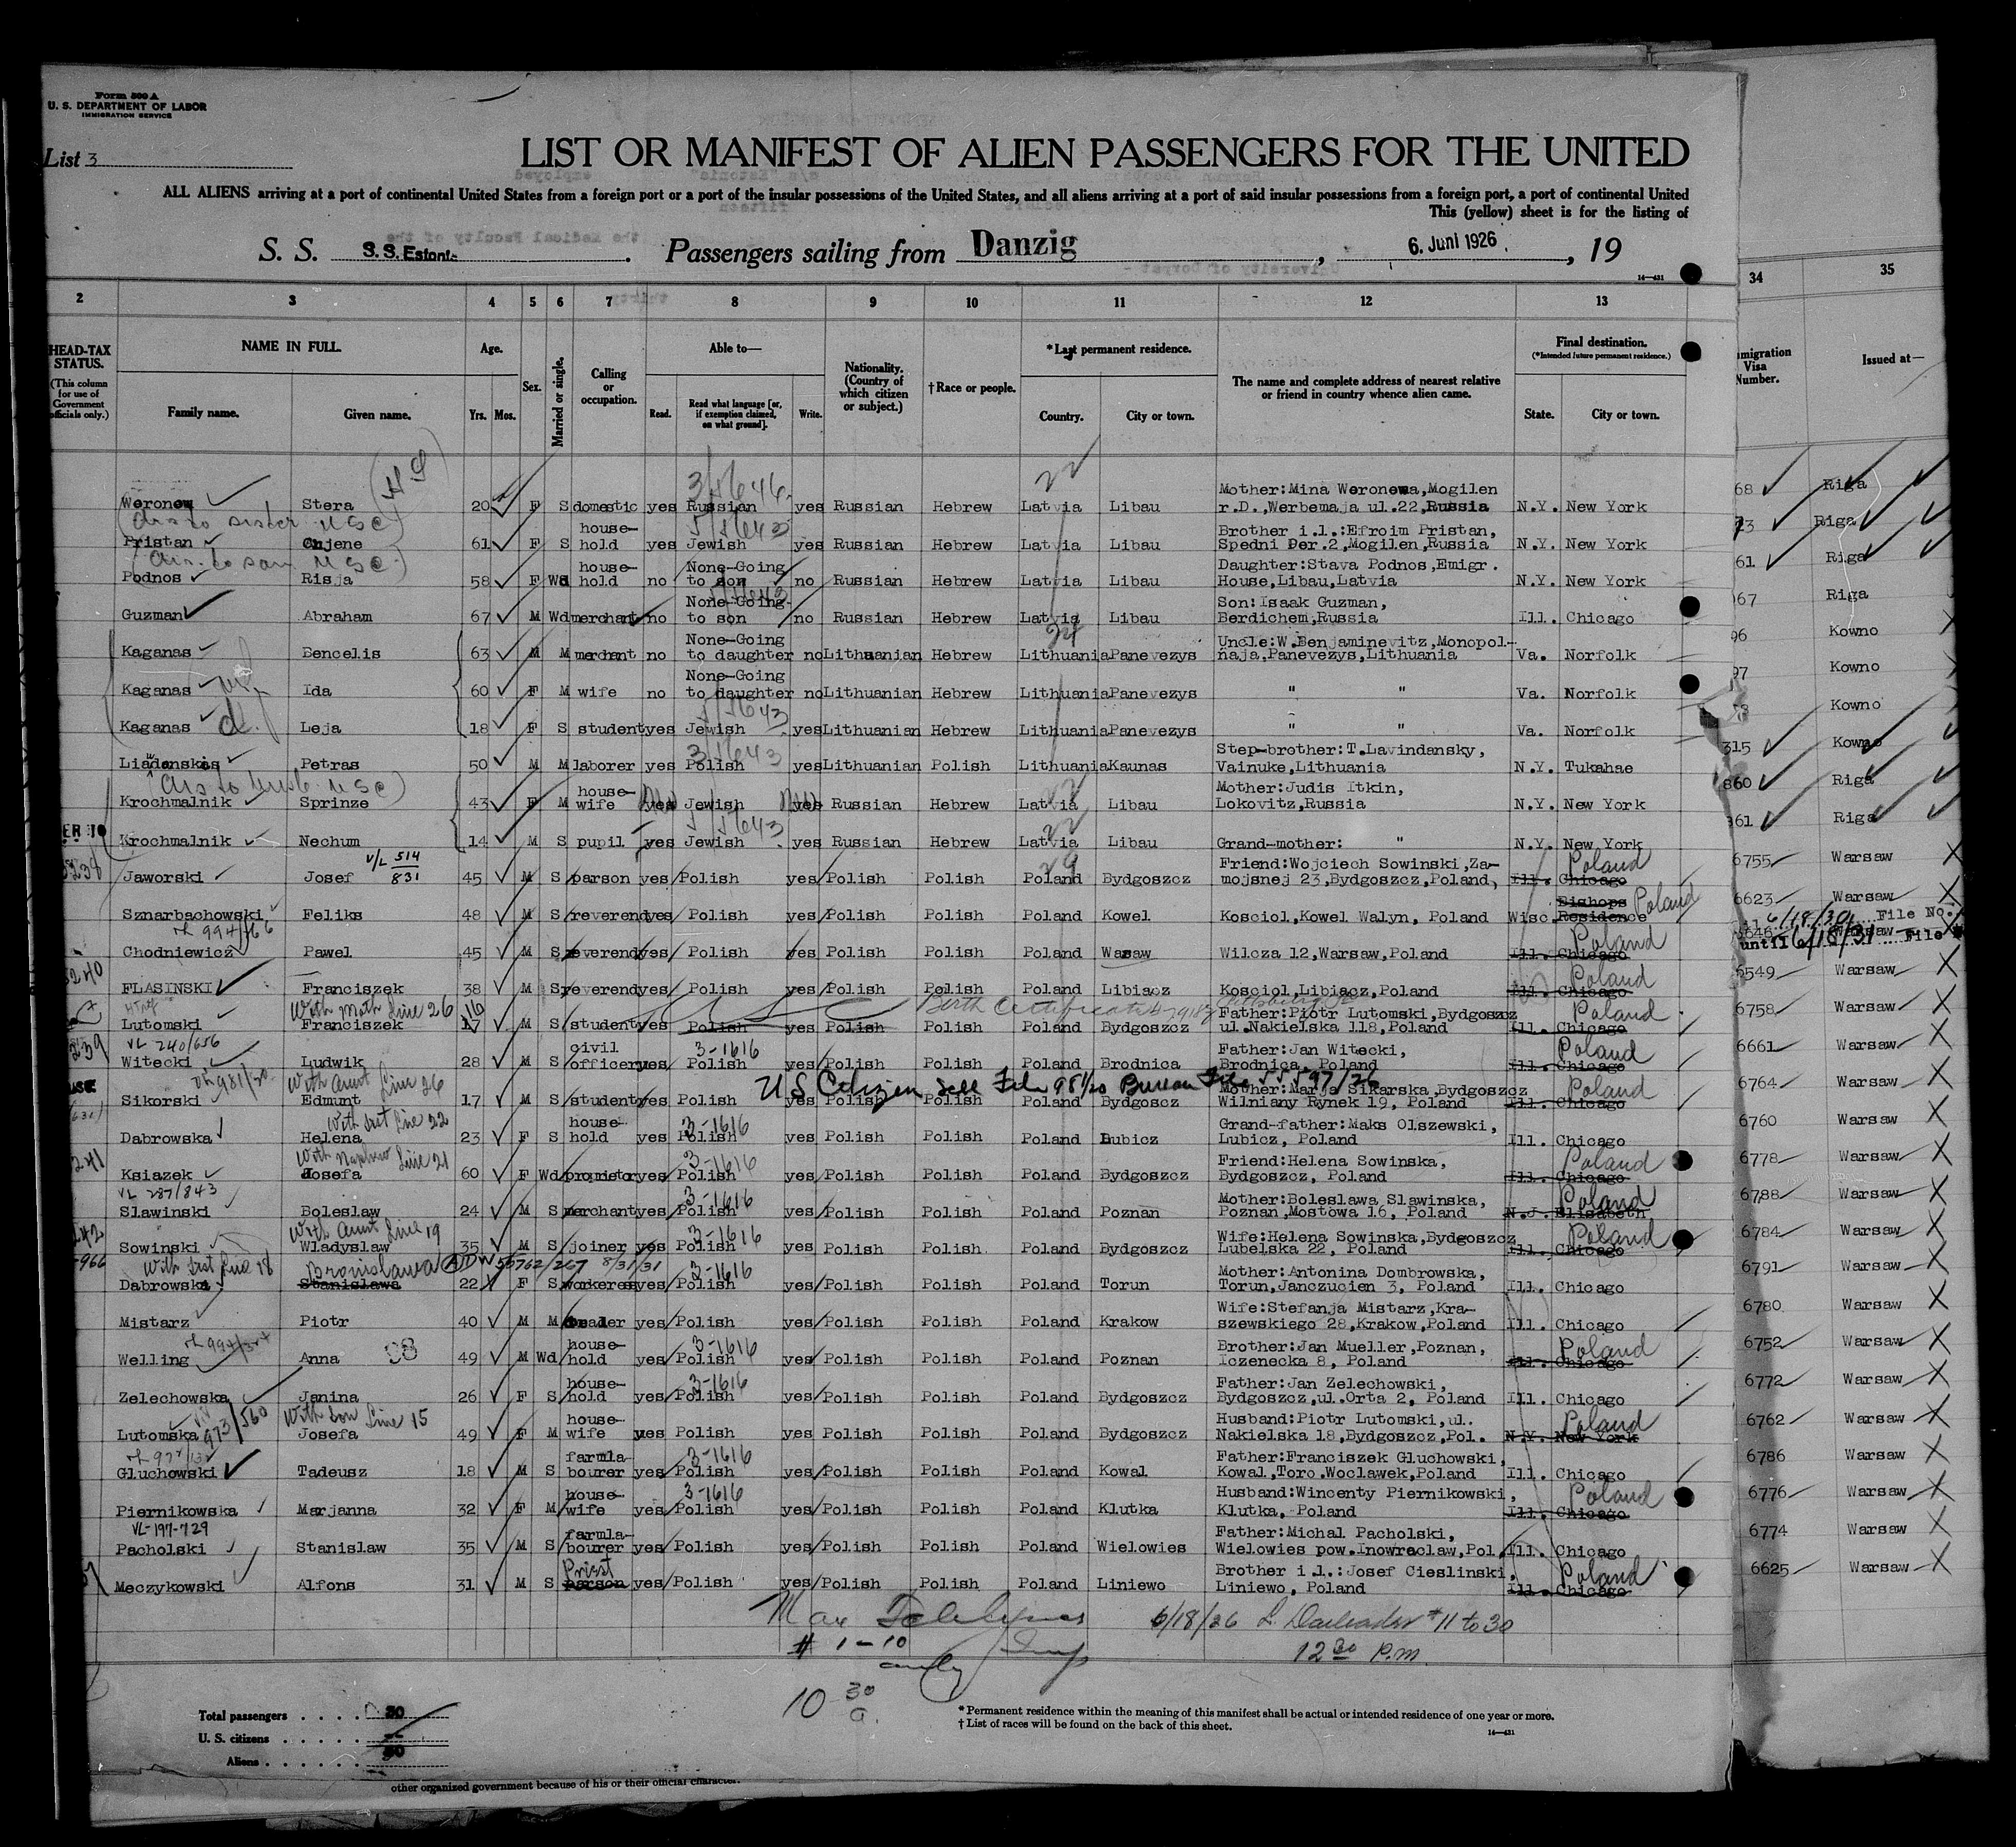 Form 500 A
U. S. DEPARTMENT OF LABOR
IMMIGRATION SERVICE
List 3
LIST OR MANIFEST OF ALIEN PASSENGERS FOR THE UNITED
ALL ALIENS arriving at a port of continental United States from a foreign port or a port of the insular possessions of the United States, and all aliens arriving at a port of said insular possessions from a foreign port, a port of continental United
This (yellow) sheet is for the listing of
S. S. S.S. Estonia. Passengers sailing from Danzig, 6. Juni 1926, 19
14—431
2 3 4 5 6 7 8 9 10 11 12 13 34 35
HEAD-TAX STATUS. (This column for use of Government officials only.)
NAME IN FULL. Family name. Given name.
Age. Yrs. Mos.
Sex.
Married or single.
Calling or occupation.
Able to— Read. Read what language [or, if exemption claimed, on what ground]. Write.
Nationality. (Country of which citizen or subject.)
† Race or people.
*Last permanent residence. Country. City or town.
The name and complete address of nearest relative or friend in country whence alien came.
Final destination. (*Intended future permanent residence.) State. City or town.
Immigration Visa Number.
Issued at—
Weronew Stera 20 F S domestic yes Russian yes Russian Hebrew Latvia Libau Mother:Mina Weronewa,Mogilen r.D.,Werbemaja ul.22,Russia N.Y. New York 68 Riga
Pristan Anjene 61 F S house-hold yes Jewish yes Russian Hebrew Latvia Libau Brother i.l.:Efroim Pristan, Spedni Per.2,Mogilen,Russia N.Y. New York 73 Riga
Podnos Risja 58 F Wd house-hold no None-Going to son no Russian Hebrew Latvia Libau Daughter:Stava Podnos,Emigr. House,Libau,Latvia N.Y. New York 61 Riga
Guzman Abraham 67 M Wd merchant no None-Going to son no Russian Hebrew Latvia Libau Son:Isaak Guzman, Berdichem,Russia Ill. Chicago 67 Riga
Kaganas Bencelis 63 M M merchant no None-Going to daughter no Lithuanian Hebrew Lithuania Panevezys Uncle:W.Benjaminevitz,Monopol-naja,Panevezys,Lithuania Va. Norfolk 96 Kowno
Kaganas Ida 60 F M wife no None-Going to daughter no Lithuanian Hebrew Lithuania Panevezys " " Va. Norfolk 97 Kowno
Kaganas Leja 18 F S student yes Jewish yes Lithuanian Hebrew Lithuania Panevezys " " Va. Norfolk Kowno
Petras 50 M M laborer yes Polish yes Lithuanian Polish Lithuania Kaunas Step-brother:T.Lavindansky, Vainuke,Lithuania N.Y. Tukahae 315 Kowno
Krochmalnik Sprinze 43 F M house-wife yes Jewish yes Russian Hebrew Latvia Libau Mother:Judis Itkin, Lokovitz,Russia N.Y. New York 860 Riga
Krochmalnik Nechum 14 M S pupil yes Jewish yes Russian Hebrew Latvia Libau Grand-mother: " N.Y. New York 361 Riga
Jaworski Josef V/L 514 831 45 M S parson yes Polish yes Polish Polish Poland Bydgoszcz Friend:Wojciech Sowinski,Za-mojsnej 23,Bydgoszcz,Poland, Ill. Chicago Poland 6755 Warsaw
Sznarbachowski Feliks 48 M S reverend yes Polish yes Polish Polish Poland Kowel Kosciol,Kowel Walyn, Poland Wisc. Bishops Residence Poland 6623 Warsaw
Chodniewicz Pawel 45 M S reverend yes Polish yes Polish Polish Poland Warsaw Wilcza 12,Warsaw,Poland Ill. Chicago Poland Warsaw
6/18/30 File No.
until 6/18/31 File
FLASINSKI Franciszek 38 M S reverend yes Polish yes Polish Polish Poland Libiacz Kosciol,Libiacz,Poland Ill. Chicago Poland 6549 Warsaw
With Moth Line 26 Birth Certificate
Lutomski Franciszek 17 M S student yes Polish yes Polish Polish Poland Bydgoszcz Father:Piotr Lutomski,Bydgoszcz ul.Nakielska 118,Poland Ill. Chicago Poland 6758 Warsaw
VL 240/656
Witecki Ludwik 28 M S civil officer yes Polish 3-1616 yes Polish Polish Poland Brodnica Father:Jan Witecki, Brodnica, Poland Ill. Chicago Poland 6661 Warsaw
With Aunt Line 26 U S Citizen see File 981/20 Bureau File 55597/26
Sikorski Edmunt 17 M S student yes Polish yes Polish Polish Poland Bydgosc Mother:Marja Sikarska,Bydgoszcz Wilniany Rynek 19, Poland Ill. Chicago Poland 6764 Warsaw
With Sist Line 22
Dabrowska Helena 23 F S house-hold yes Polish 3-1616 yes Polish Polish Poland Lubicz Grand-father:Maks Olszewski, Lubicz, Poland Ill. Chicago 6760 Warsaw
With Nephew Line 21
Ksiazek Josefa 60 F Wd proprietor yes Polish 3-1616 yes Polish Polish Poland Bydgoszcz Friend:Helena Sowinska, Bydgoszcz, Poland Ill. Chicago Poland 6778 Warsaw
VL 287/843
Slawinski Boleslaw 24 M S merchant yes Polish 3-1616 yes Polish Polish Poland Poznan Mother:Boleslawa Slawinska, Poznan,Mostowa 16, Poland N.J. Elisabeth Poland 6788 Warsaw
With Aunt Line 19
Sowinski Wladyslaw 35 M S joiner yes Polish 3-1616 yes Polish Polish Poland Bydgoszcz Wife:Helena Sowinska,Bydgoszcz Lubelska 22, Poland Ill. Chicago Poland 6784 Warsaw
With Sist Line 18 Bronislawa 55762/267 8/31/31
Dabrowska Stanislawa 22 F S workeress yes Polish 3-1616 yes Polish Polish Poland Torun Mother:Antonina Dombrowska, Torun,Janczucien 3, Poland Ill. Chicago 6791 Warsaw
Mistarz Piotr 40 M M yes Polish yes Polish Polish Poland Krakow Wife:Stefanja Mistarz,Kra-szewskiego 28,Krakow,Poland Ill. Chicago 6780 Warsaw
Welling Anna 49 M Wd house-hold yes Polish 3-1616 yes Polish Polish Poland Poznan Brother:Jan Mueller,Poznan, Iczenecka 8, Poland Ill. Chicago Poland 6752 Warsaw
Zelechowska Janina 26 F S house-hold yes Polish 3-1616 yes Polish Polish Poland Bydgoszcz Father:Jan Zelechowski, Bydgoszcz,ul.Orta 2, Poland Ill. Chicago 6772 Warsaw
973/560 With Son Line 15
Lutomska Josefa 49 F M house-wife yes Polish yes Polish Polish Poland Bydgoszcz Husband:Piotr Lutomski,ul. Nakielska 18,Bydgoszcz,Pol. N.Y. New York Poland 6762 Warsaw
Gluchowski Tadeusz 18 M S farmla-bourer yes Polish 3-1616 yes Polish Polish Poland Kowal Father:Franciszek Gluchowski, Kowal,Toro.Woclawek,Poland Ill. Chicago 6786 Warsaw
Piernikowska Marjanna 32 F M house-wife yes Polish 3-1616 yes Polish Polish Poland Klutka Husband:Wincenty Piernikowski, Klutka, Poland Ill. Chicago Poland 6776 Warsaw
VL-197-729
Pacholski Stanislaw 35 M S farmla-bourer yes Polish yes Polish Polish Poland Wielowies Father:Michal Pacholski, Wielowies pow.Inowraclaw,Pol. Ill. Chicago 6774 Warsaw
Meczykowski Alfons 31 M S Priest parson yes Polish yes Polish Polish Poland Liniewo Brother i.l.:Josef Cieslinski, Liniewo, Poland Ill. Chicago Poland 6625 Warsaw
Max
# 1-10
6/18/26 #11 to 30
12 30 P.m
10 30 a.
Total passengers . . . . 30
U. S. citizens . . . . .
Aliens . . . . . . 30
* Permanent residence within the meaning of this manifest shall be actual or intended residence of one year or more.
† List of races will be found on the back of this sheet.
14—431
other organized government because of his or their official character.